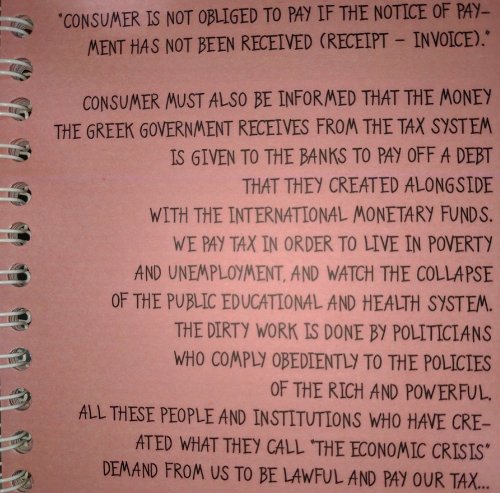 "CONSUMER IS NOT OBLIGED TO PAY IF THE NOTICE OF PAY-
MENT HAS NOT BEEN RECEIVED (RECEIPT - INVOICE)."
CONSUMER MUST ALSO BE INFORMED THAT THE MONEY
THE GREEK GOVERNMENT RECEIVES FROM THE TAX SYSTEM
IS GIVEN TO THE BANKS TO PAY OFF A DEBT
THAT THEY CREATED ALONGSIDE
WITH THE INTERNATIONAL MONETARY FUNDS.
WE PAY TAX IN ORDER TO LIVE IN POVERTY
AND UNEMPLOYMENT, AND WATCH THE COLLAPSE
OF THE PUBLIC EDUCATIONAL AND HEALTH SYSTEM.
THE DIRTY WORK IS DONE BY POLITICIANS
WHO COMPLY OBEDIENTLY TO THE POLICIES
OF THE RICH AND POWERFUL.
ALL THESE PEOPLE AND INSTITUTIONS WHO HAVE CRE-
ATED WHAT THEY CALL "THE ECONOMIC CRISIS"
DEMAND FROM US TO BE LAWFUL AND PAY OUR TAX...